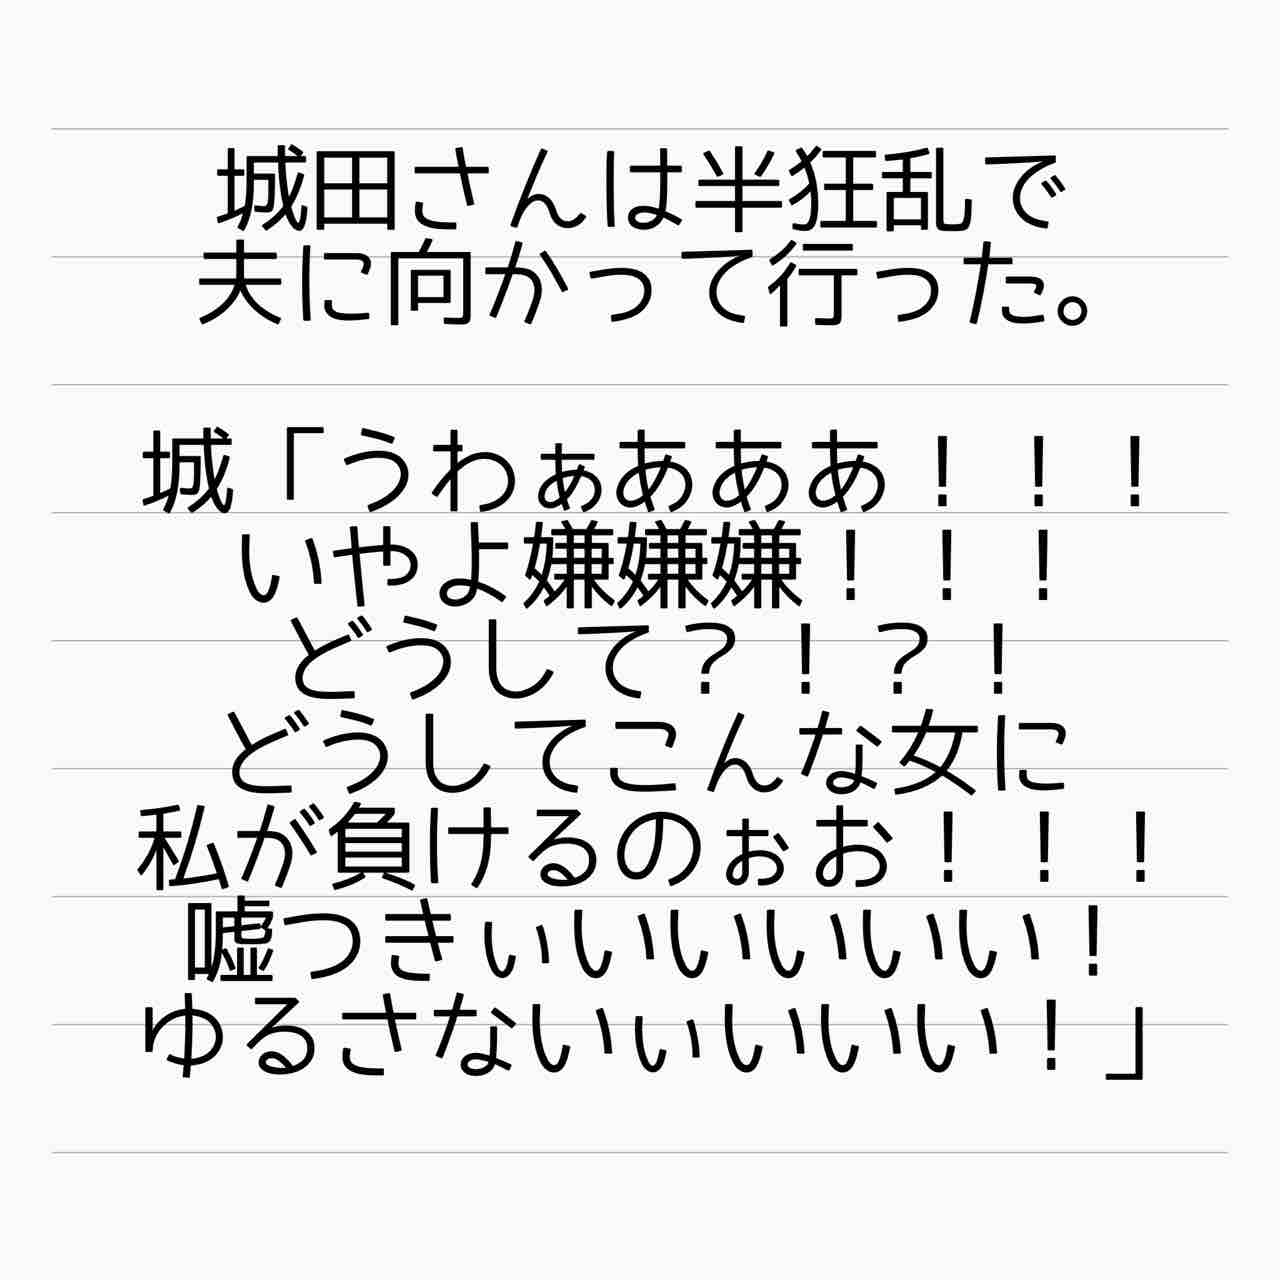 城田さんは半狂乱で
夫に向かって行った。
城「うわぁあああ！！！
いやよ嫌嫌嫌！！！
どうして？！？！
どうしてこんな女に
私が負けるのぉお！！！
嘘つきぃいいいいい！
ゆるさないぃいいい！」